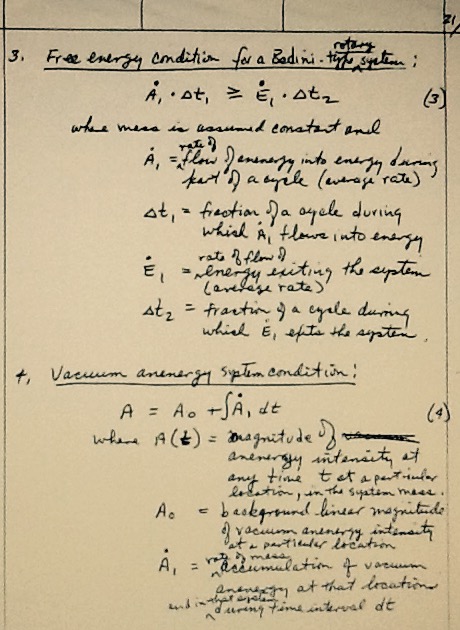 21/
3. Free energy condition for a Bedini-type rotary system:
Ȧ₁ · Δt₁ ≥ Ė₁ · Δt₂ (3)
where mass is assumed constant and
Ȧ₁ = rate of flow of anenergy into energy during
part of a cycle (average rate)
Δt₁ = fraction of a cycle during
which Ȧ₁ flows into energy
Ė₁ = rate of flow of energy exiting the system
(average rate)
Δt₂ = fraction of a cycle during
which Ė₁ exits the system.
4. Vacuum anenergy system condition:
A = A₀ + ∫Ȧ₁ dt (4)
where A(t) = magnitude of
anenergy intensity at
any time t at a particular
location, in the system mass.
A₀ = background linear magnitude
of vacuum anenergy intensity
at a particular location
Ȧ₁ = rate of mass accumulation of vacuum
anenergy at that location
and in that system during time interval dt